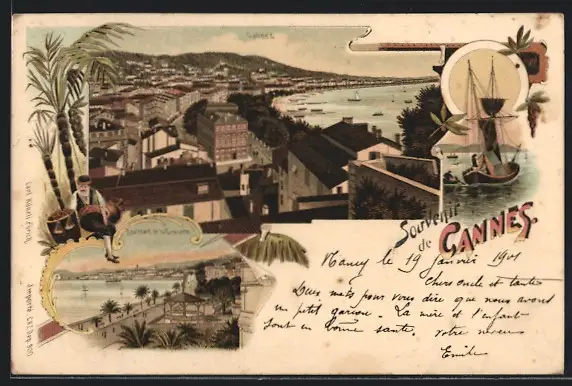 CANNES
Souvenir
de
CANNES.
Nancy le 19 Janvier 1901
Chers oncle et tante
Deux mots pour vous dire que nous avons
un petit garçon. La mère et l'enfant
sont en bonne santé. Votre neveu
Emile
Boulevard de la Croisette
Carl Künzli, Zürich,